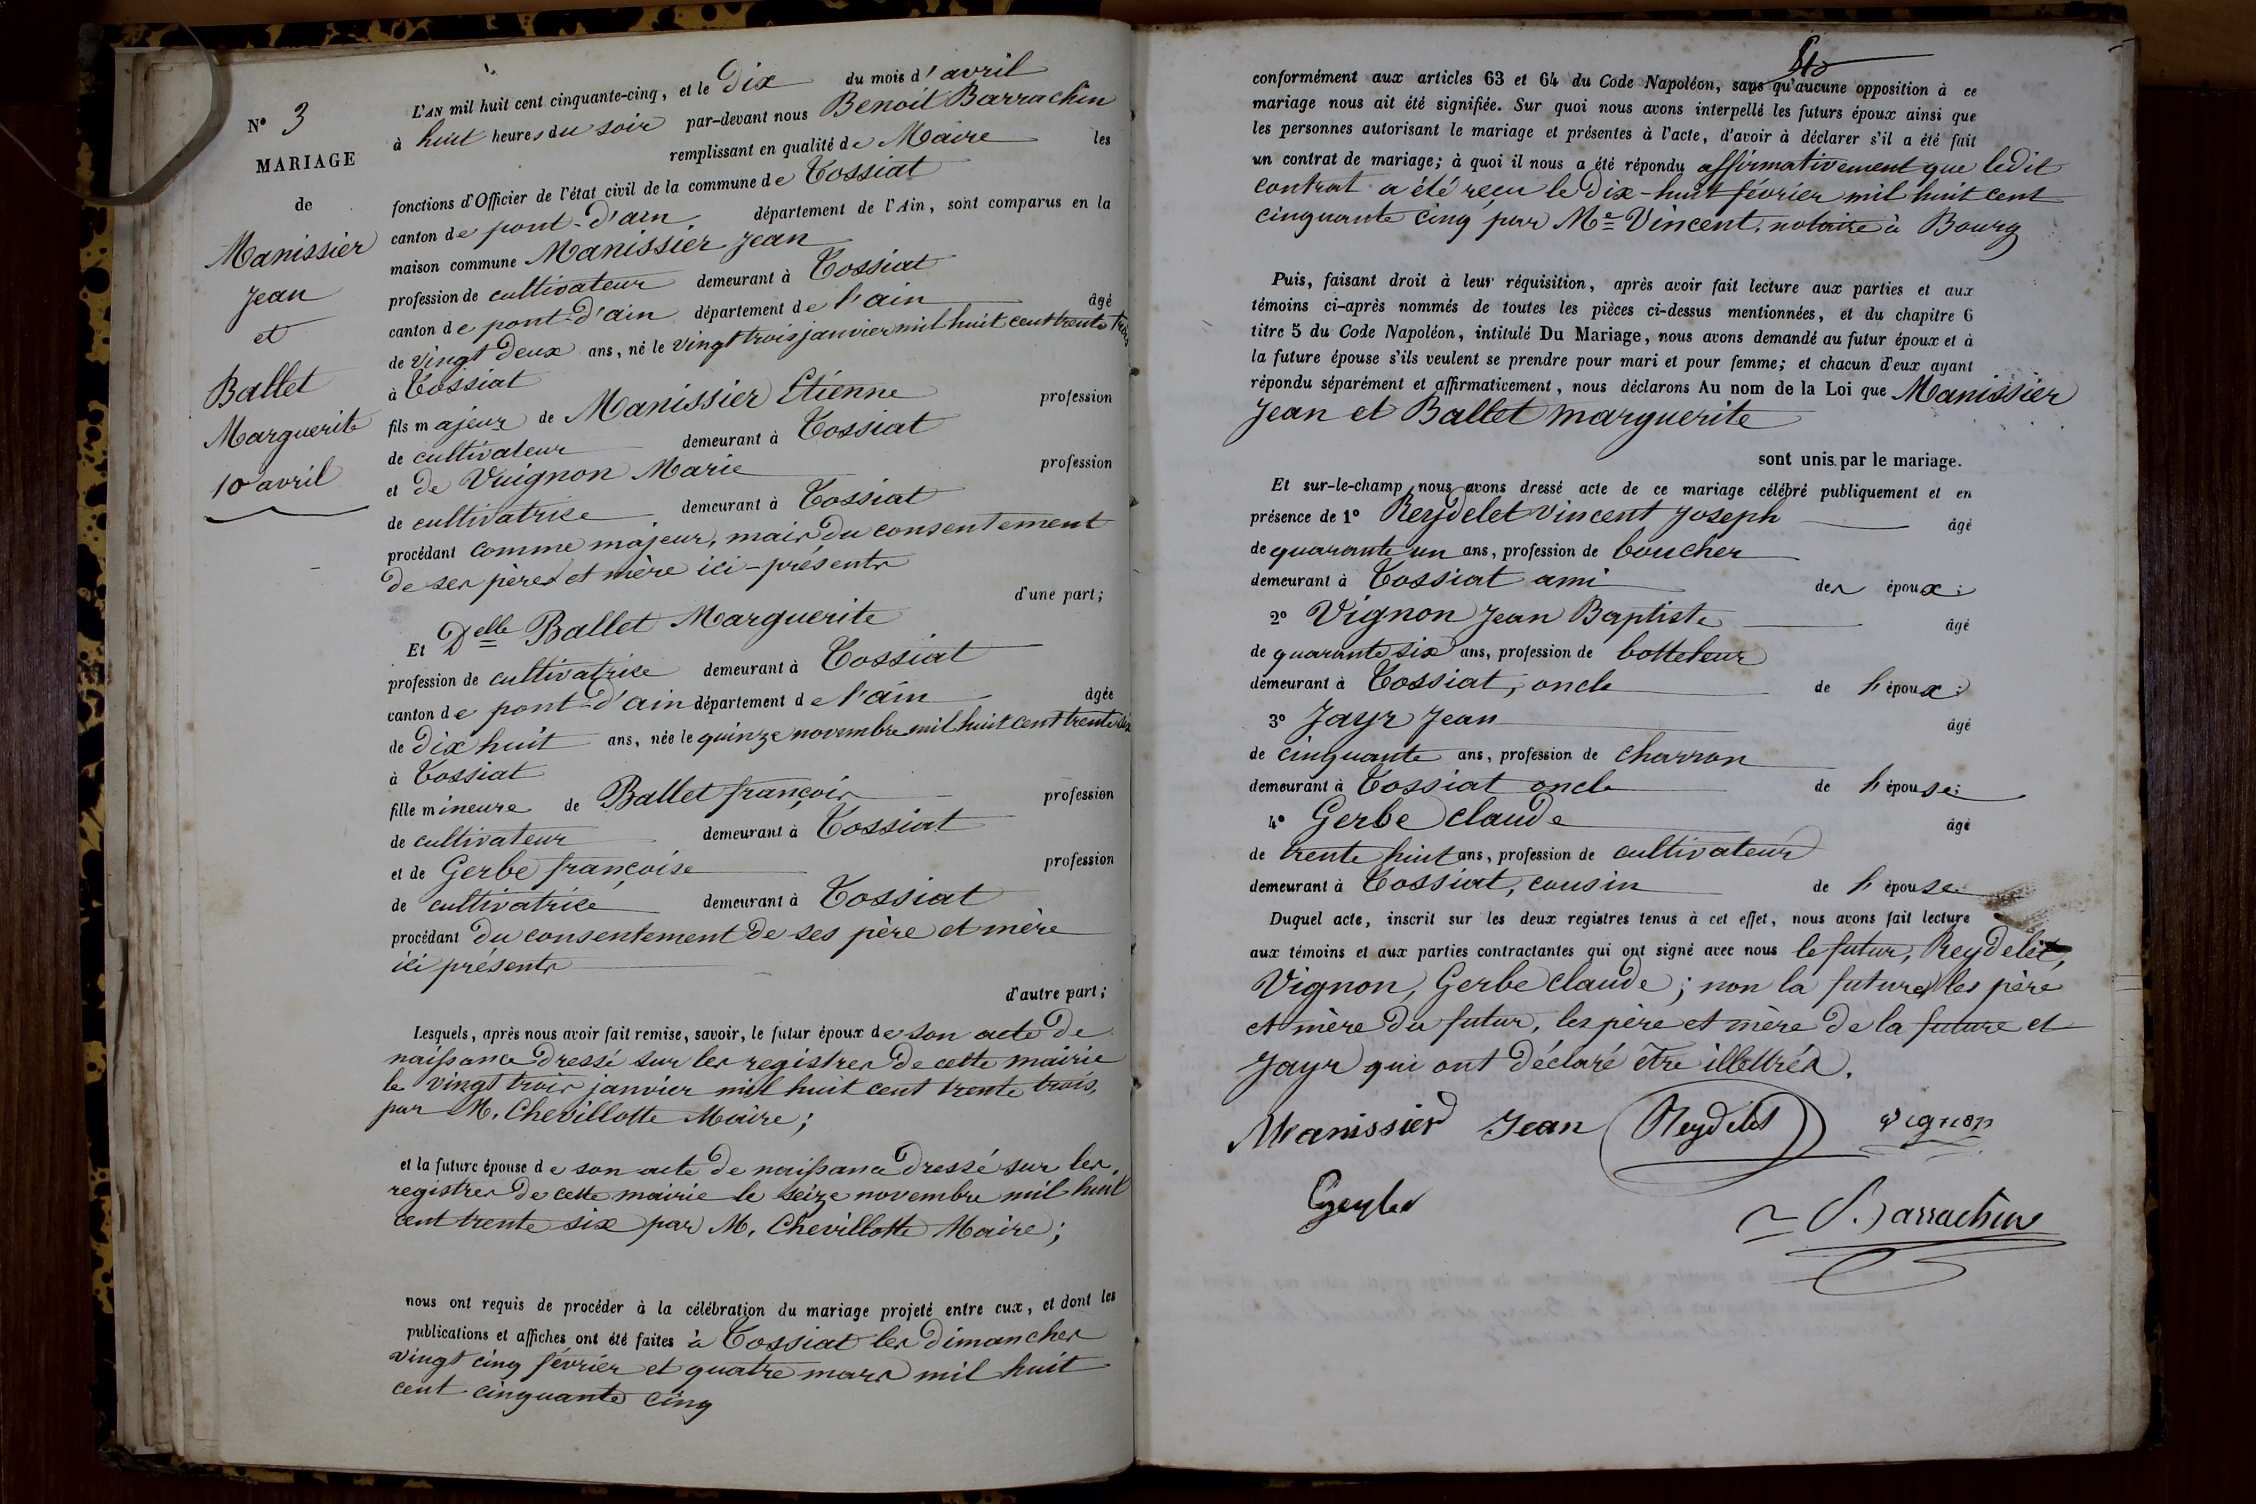 N° 3
MARIAGE
de
Manissier
Jean
et
Ballet
Marguerite
10 avril
L'AN mil huit cent cinquante-cinq, et le Dix du mois d'avril
à huit heures du soir par-devant nous Benoit Barrachin
remplissant en qualité de Maire les
fonctions d'Officier de l'état civil de la commune de Tossiat
canton de pont-d'ain département de l'Ain, sont comparus en la
maison commune Manissier Jean
profession de cultivateur demeurant à Tossiat
canton de pont-d'ain département de l'ain âgé
de vingt Deux ans, né le vingt trois janvier mil huit cent trente trois
à Tossiat
fils majeur de Manissier Etienne profession
de cultivateur demeurant à Tossiat
et de Vuignon Marie profession
de cultivatrice demeurant à Tossiat
procédant comme majeur, mais du consentement
de ses pères et mère ici-présents
d'une part;
Et Delle Ballet Marguerite
profession de cultivatrice demeurant à Tossiat
canton de pont-d'ain département de l'ain âgée
de Dix huit ans, née le quinze novembre mil huit cent trente six
à Tossiat
fille mineure de Ballet françois profession
de cultivateur demeurant à Tossiat
et de Gerbe françoise profession
de cultivatrice demeurant à Tossiat
procédant du consentement de ses père et mère
ici présents
d'autre part;
Lesquels, après nous avoir fait remise, savoir, le futur époux de son acte de
naissance dressé sur les registres de cette mairie
le vingt trois janvier mil huit cent trente trois,
par M. Chevillotte Maire;
et la future épouse de son acte de naissance dressé sur les
registres de cette mairie le seize novembre mil huit
cent trente six par M. Chevillotte Maire;
nous ont requis de procéder à la célébration du mariage projeté entre eux, et dont les
publications et affiches ont été faites à Tossiat les dimanches
vingt cinq février et quatre mars mil huit
cent cinquante cinq
conformément aux articles 63 et 64 du Code Napoléon, sans qu'aucune opposition à ce
mariage nous ait été signifiée. Sur quoi nous avons interpellé les futurs époux ainsi que
les personnes autorisant le mariage et présentes à l'acte, d'avoir à déclarer s'il a été fait
un contrat de mariage; à quoi il nous a été répondu affirmativement que ledit
contrat a été reçu le dix-huit février mil huit cent
cinquante cinq par Me Vincent, notaire à Bourg
Puis, faisant droit à leur réquisition, après avoir fait lecture aux parties et aux
témoins ci-après nommés de toutes les pièces ci-dessus mentionnées, et du chapitre 6
titre 5 du Code Napoléon, intitulé Du Mariage, nous avons demandé au futur époux et à
la future épouse s'ils veulent se prendre pour mari et pour femme; et chacun d'eux ayant
répondu séparément et affirmativement, nous déclarons Au nom de la Loi que Manissier
Jean et Ballet marguerite
sont unis par le mariage.
Et sur-le-champ nous avons dressé acte de ce mariage célébré publiquement et en
présence de 1° Reydelet Vincent Joseph âgé
de quarante un ans, profession de boucher
demeurant à Tossiat ami des époux;
2° Vignon Jean Baptiste âgé
de quarante six ans, profession de botteleur
demeurant à Tossiat, oncle de l'époux;
3° Jayr Jean âgé
de cinquante ans, profession de charron
demeurant à Tossiat oncle de l'épouse;
4° Gerbe claude âgé
de trente huit ans, profession de cultivateur
demeurant à Tossiat, cousin de l'épouse
Duquel acte, inscrit sur les deux registres tenus à cet effet, nous avons fait lecture
aux témoins et aux parties contractantes qui ont signé avec nous le futur, Reydelet,
Vignon, Gerbe claude; non la future, les père
et mère du futur, les père et mère de la future et
Jayr qui ont déclaré être illettrés.
Manissier Jean Reydelet vignon
Gerbe
Barrachin